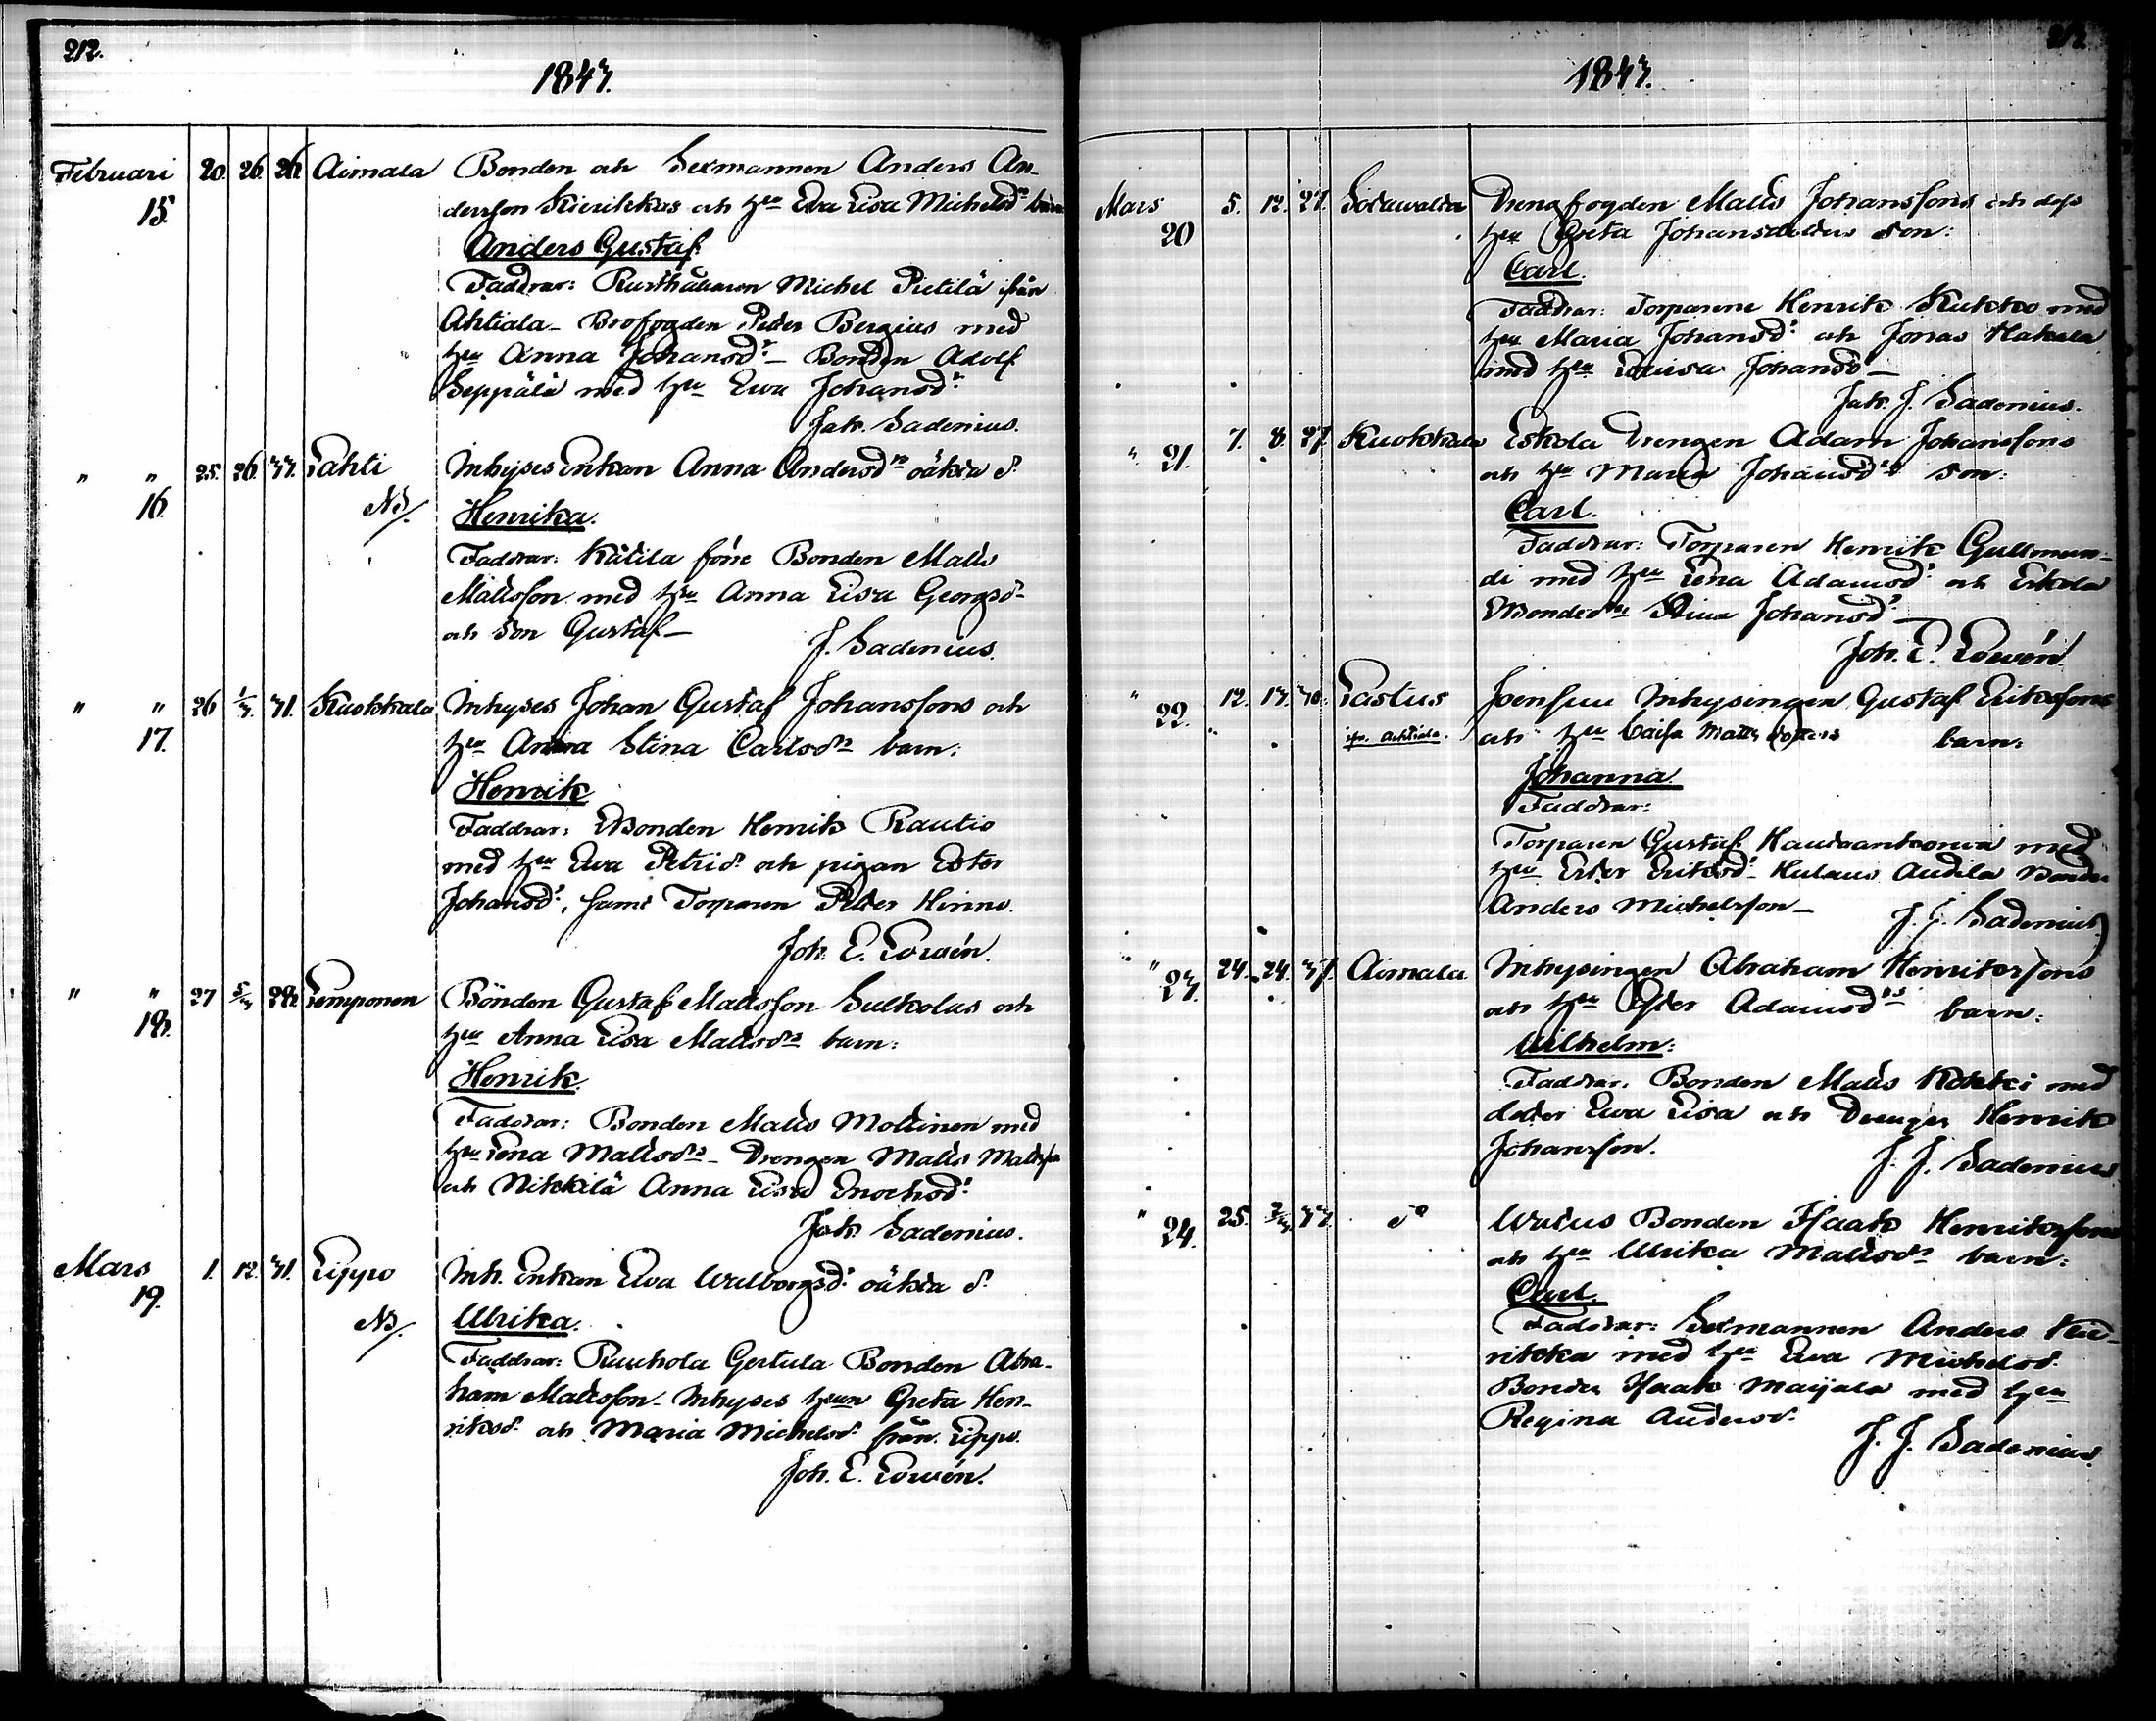 212.
1847.
Februari 20. 26. 26. Aimala Bonden och Sexmannen Anders An-
15. dersson Kierikkas och hu Eva Lisa Michelsdr barn
Anders Gustaf.
Faddrar: Rusthållaren Michel Pietilä från
Ahtiala - Brofogden Peter Bergius med
hu Anna Johansdr - Bonden Adolf
Seppälä med hu Ewa Johansdr
Jak. Sadenius.
" " 25. 26. 37. Lahti Inhyses Enkan Anna Andersdrs oäkta d.
16. NB/. Henrika.
Faddrar: Kätilä förre Bonden Matts
Mattsson med hu Anna Lisa Georgsd-
och Son Gustaf -
J. Sadenius.
" " 26 31. Kuokkala Inhyses Johan Gustaf Johanssons och
17. hu Anna Stina Carlsdrs barn:
Henrik
Faddrar: Bonden Henrik Rautio
med hu Ewa Petrid. och pigan Ester
Johansdr, samt Torparen Peter Hinno.
Joh. E. Lowén.
" " 27 Lemponen Bonden Gustaf Mattsson Sulkolas och
18. hu Anna Lisa Mattsdrs barn:
Henrik.
Faddrar: Bonden Matts Moltinen med
hu Lena Mattsdr - Drengen Matts Mattsson
och Nikkilä Anna Lisa Enochsdr
Jak Sadenius.
Mars 1. 12. 31. Lippo Inh. Enkan Ewa Walborgsdr oäkta d.
19. NB/. Ulrika.
Faddrar: Ruuhola Gertula Bonden Abra-
ham Mattsson - Inhyses hun Greta Hen-
riksd. och Maria Michelsd. från Lippo.
Joh. E. Lowén.
212
1847.
Mars 5. 12. 27. Sotawalta Drengfogden Matts Johanssons och dess
20 hu Greta Johansdotters son:
Carl.
Faddrar: Torparene Henrik Kukko med
hu Maria Johansdr och Jonas Hakala
med hu Lovisa Johansd -
Jak. J. Sadenius.
" 21. 7. 8. 27. Kuokkala Eskola Drengen Adam Johanssons
och hu Maria Johansdrs son:
Carl.
Faddrar: Torparen Henrik Gullman-
di med hu Lena Adamsdr och Eskola
Stina Johansdr -
Joh. E. Lowén.
" 22. 12. Joensuu Inhysingen Gustaf Erikssons
och hu Caisa Matts dotters barn:
Johanna
Faddrar:
Torparen Gustaf med
hu Ester Eriksdr - Andila
Anders Michelsson -
J. J. Sadenius
" 23. 24. 24. 37. Aimala Inhysingen Abraham Henrikssons
och hu Ester Adamsdrs barn:
Wilhelm:
Faddrar: Bonden Matts Kokki med
dotter Ewa Lisa och Drengen Henrik
Johansson.
J. J. Sadenius
" 24. 25. 37. do Bonden Isaak Henrikssons
och hu Ulrika Mattsdrs barn:
Carl.
Faddrar: Sexmannen Anders Kie-
rikka med hu Ewa Michelsd.
Bonden Isaak Maijala med hu
Regina Andersd.
J. J. Sadenius.